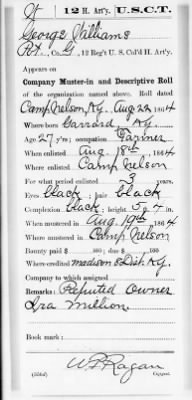 W | 12 H. Art'y. | U.S.C.T.
George Williams
Pvt., Co. G, 12 Reg't U. S. Col'd H. Art'y.
Appears on
Company Muster-in and Descriptive Roll
of the organization named above. Roll dated
Camp Nelson, Ky. Aug 22, 1864
Where born Garrard, Ky.
Age 27 y'rs; occupation Farmer
When enlisted Aug 18th, 1864
Where enlisted Camp Nelson
For what period enlisted 3 years.
Eyes black; hair black
Complexion black; height 5 ft. 7 in.
When mustered in Aug 19th, 1864
Where mustered in Camp Nelson
Bounty paid $ 100; due $ 100
Where credited Madison 8 Dist. Ky.
Company to which assigned
Remarks: Reputed Owner
Ira Million.
Book mark:
W F Ragan
Copyist.